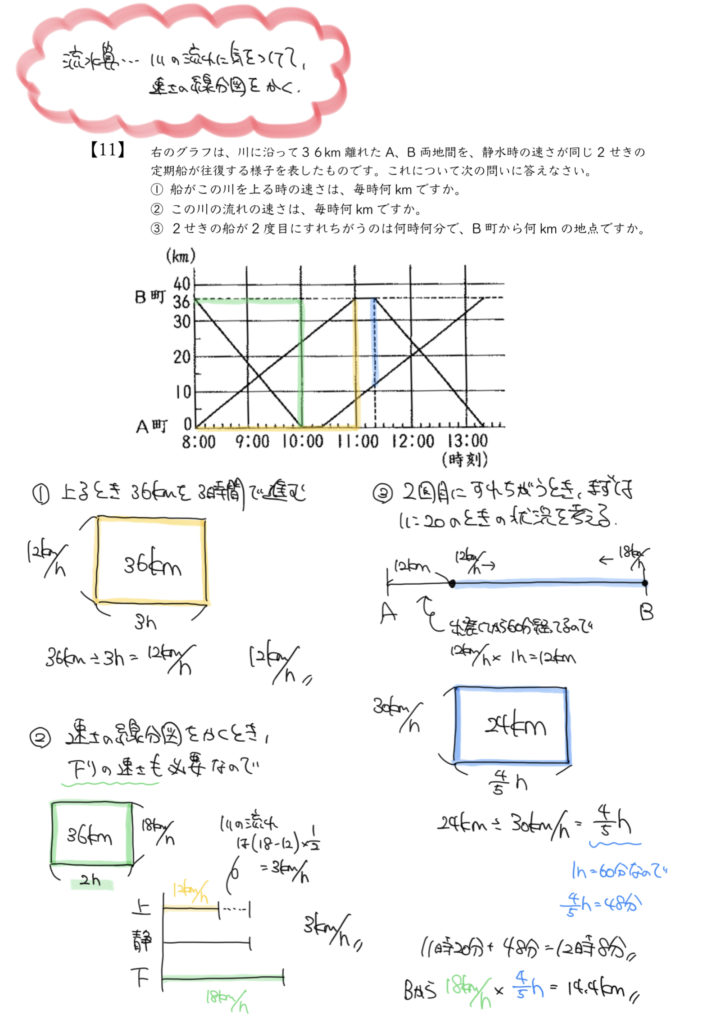 流水算… 川の流れに気をつけて、
速さの線分図をかく.
【11】 右のグラフは、川に沿って36km離れたA、B両地間を、静水時の速さが同じ2せきの
定期船が往復する様子を表したものです。これについて次の問いに答えなさい。
① 船がこの川を上る時の速さは、毎時何kmですか。
② この川の流れの速さは、毎時何kmですか。
③ 2せきの船が2度目にすれちがうのは何時何分で、B町から何kmの地点ですか。
(km)
40
B町 36
30
20
10
A町 0
8:00 9:00 10:00 11:00 12:00 13:00
(時刻)
① 上るとき36kmを3時間で進む
12km/h
36km
3h
36km÷3h=12km/h 12km/h〃
② 速さの線分図をかくとき,
下りの速さも必要なので
36km 18km/h
2h
川の流れ
は(18-12)×1/2
=3km/h
12km/h
上
静
下
18km/h
3km/h〃
③ 2回目にすれちがうとき,まずは
11:20のときの状況を考える.
12km 12km/h→ ←18km/h
A B
出発してから60分経ってるので
12km/h×1h=12km
30km/h
24km
4/5h
24km÷30km/h=4/5h
1h=60分なので
4/5h=48分
11時20分+48分=12時8分〃
Bから18km/h×4/5h=14.4km〃